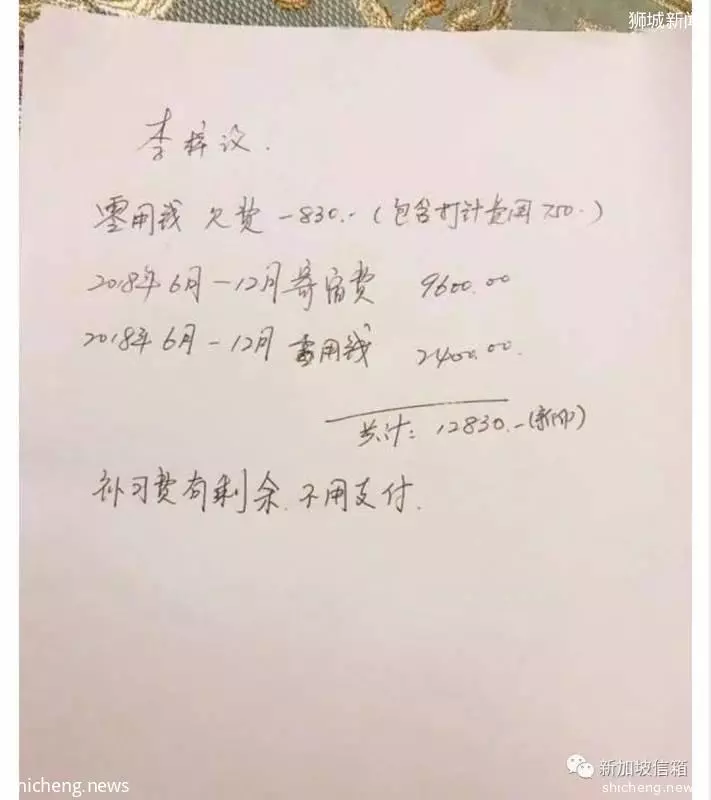 狮城新闻
李梓议.
零用钱 欠费 -830.- (包含打针费用750.)
2018年6月-12月寄宿费 9600.00
2018年6月-12月 零用钱 2400.00.
共计: 12830.-(新币)
补习费有剩余.不用支付.
新加坡信箱
shicheng.news
shicheng.news